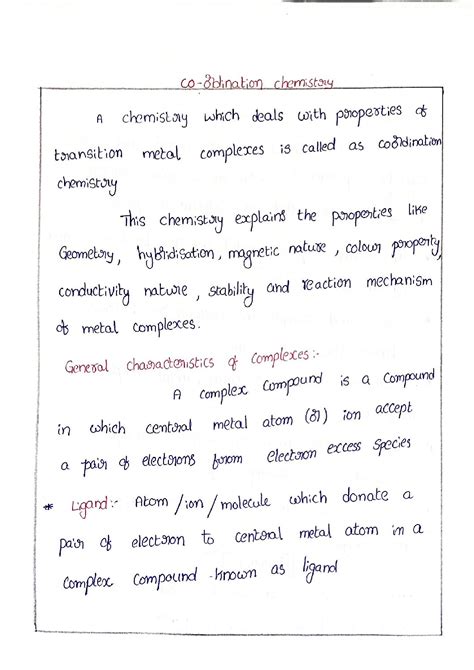 co-ordination chemistry
A chemistry which deals with properties of
transition metal complexes is called as coordination
chemistry
This chemistry explains the properties like
Geometry, hybridisation, magnetic nature, colour property,
conductivity nature, stability and reaction mechanism
of metal complexes.
General characteristics of complexes:-
A complex compound is a compound
in which central metal atom (or) ion accept
a pair of electrons from electron excess species
* Ligand:- Atom/ion/molecule which donate a
pair of electron to central metal atom in a
complex compound known as ligand